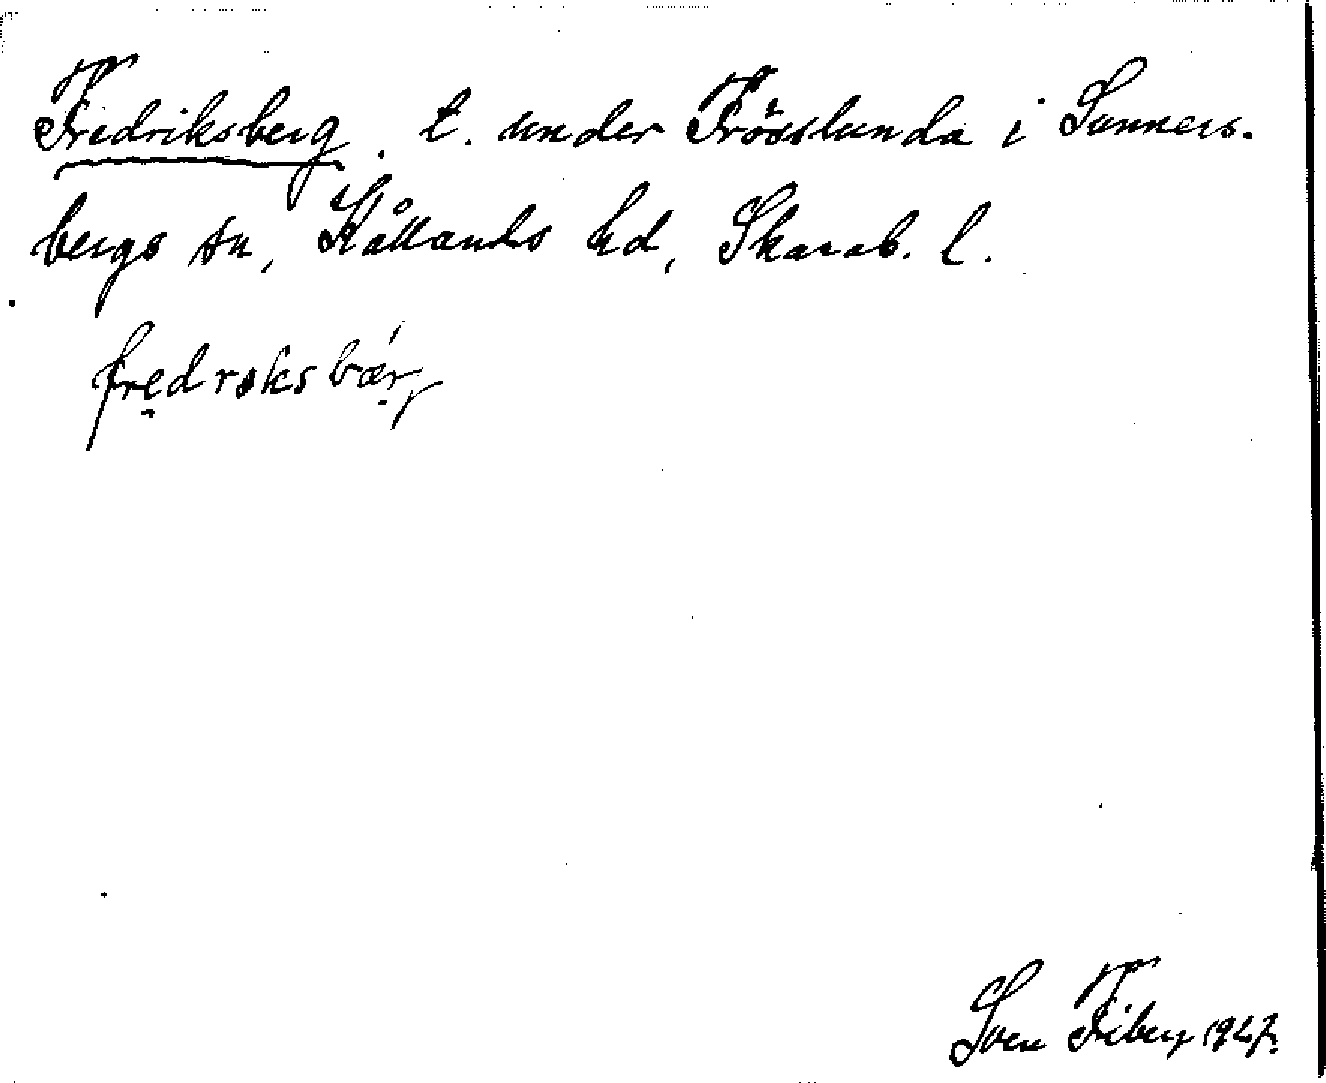 Fredriksberg. t. under Frösslunda i Sunners-
bergs sn, Kållands hd, Skarab. l.
frędrəksbær
Sven Fiberg 1947.